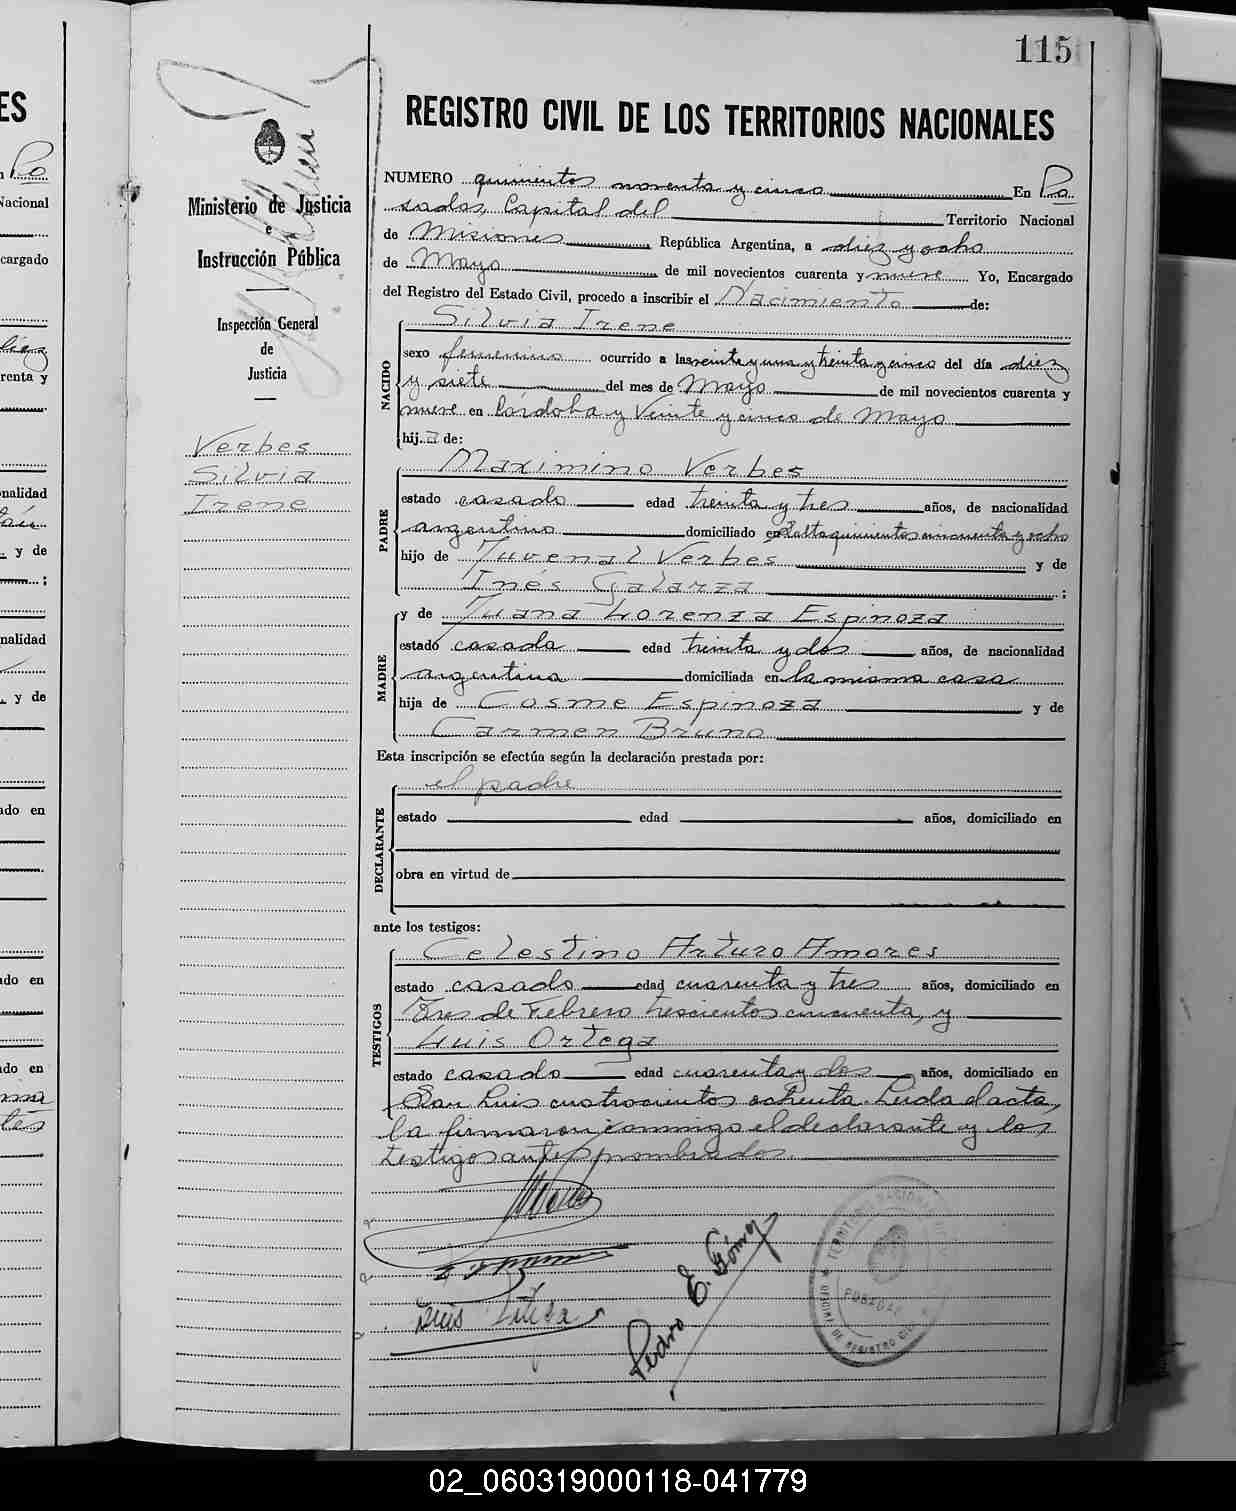 115
REGISTRO CIVIL DE LOS TERRITORIOS NACIONALES
Ministerio de Justicia
e
Instrucción Pública
Inspección General
de
Justicia
Verbes
Silvia
Irene
NUMERO quinientos noventa y cinco En Po
sadas, Capital del Territorio Nacional
de Misiones República Argentina, a diez y ocho
de Mayo de mil novecientos cuarenta y nueve Yo, Encargado
del Registro del Estado Civil, procedo a inscribir el Nacimiento de:
NACIDO
Silvia Irene
sexo femenino ocurrido a las veinte y una y treinta y cinco del día diez
y siete del mes de Mayo de mil novecientos cuarenta y
nueve en Córdoba y Veinte y cinco de Mayo
hij.a de:
PADRE
Maximino Verbes
estado casado edad treinta y tres años, de nacionalidad
argentino domiciliado en Salta quinientos cincuenta y ocho
hijo de Juvenal Verbes y de
Inés Galarza ;
MADRE
y de Juana Lorenza Espinoza
estado casada edad treinta y dos años, de nacionalidad
argentina domiciliada en la misma casa
hija de Cosme Espinoza y de
Carmen Bruno
Esta inscripción se efectúa según la declaración prestada por:
DECLARANTE
el padre
estado edad años, domiciliado en
obra en virtud de
ante los testigos:
TESTIGOS
Celestino Arturo Amores
estado casado edad cuarenta y tres años, domiciliado en
Tres de Febrero trescientos cincuenta, y
Luis Ortega
estado casado edad cuarenta y dos años, domiciliado en
San Luis cuatrocientos ochenta. Leida el acta,
la firmaron conmigo el declarante y los
testigos antes nombrados.
Luis Ortega
Pedro E. Gómez
TERRITORIO NACIONAL
POSADAS
OFICINA DE REGISTRO CIVIL
02_060319000118-041779